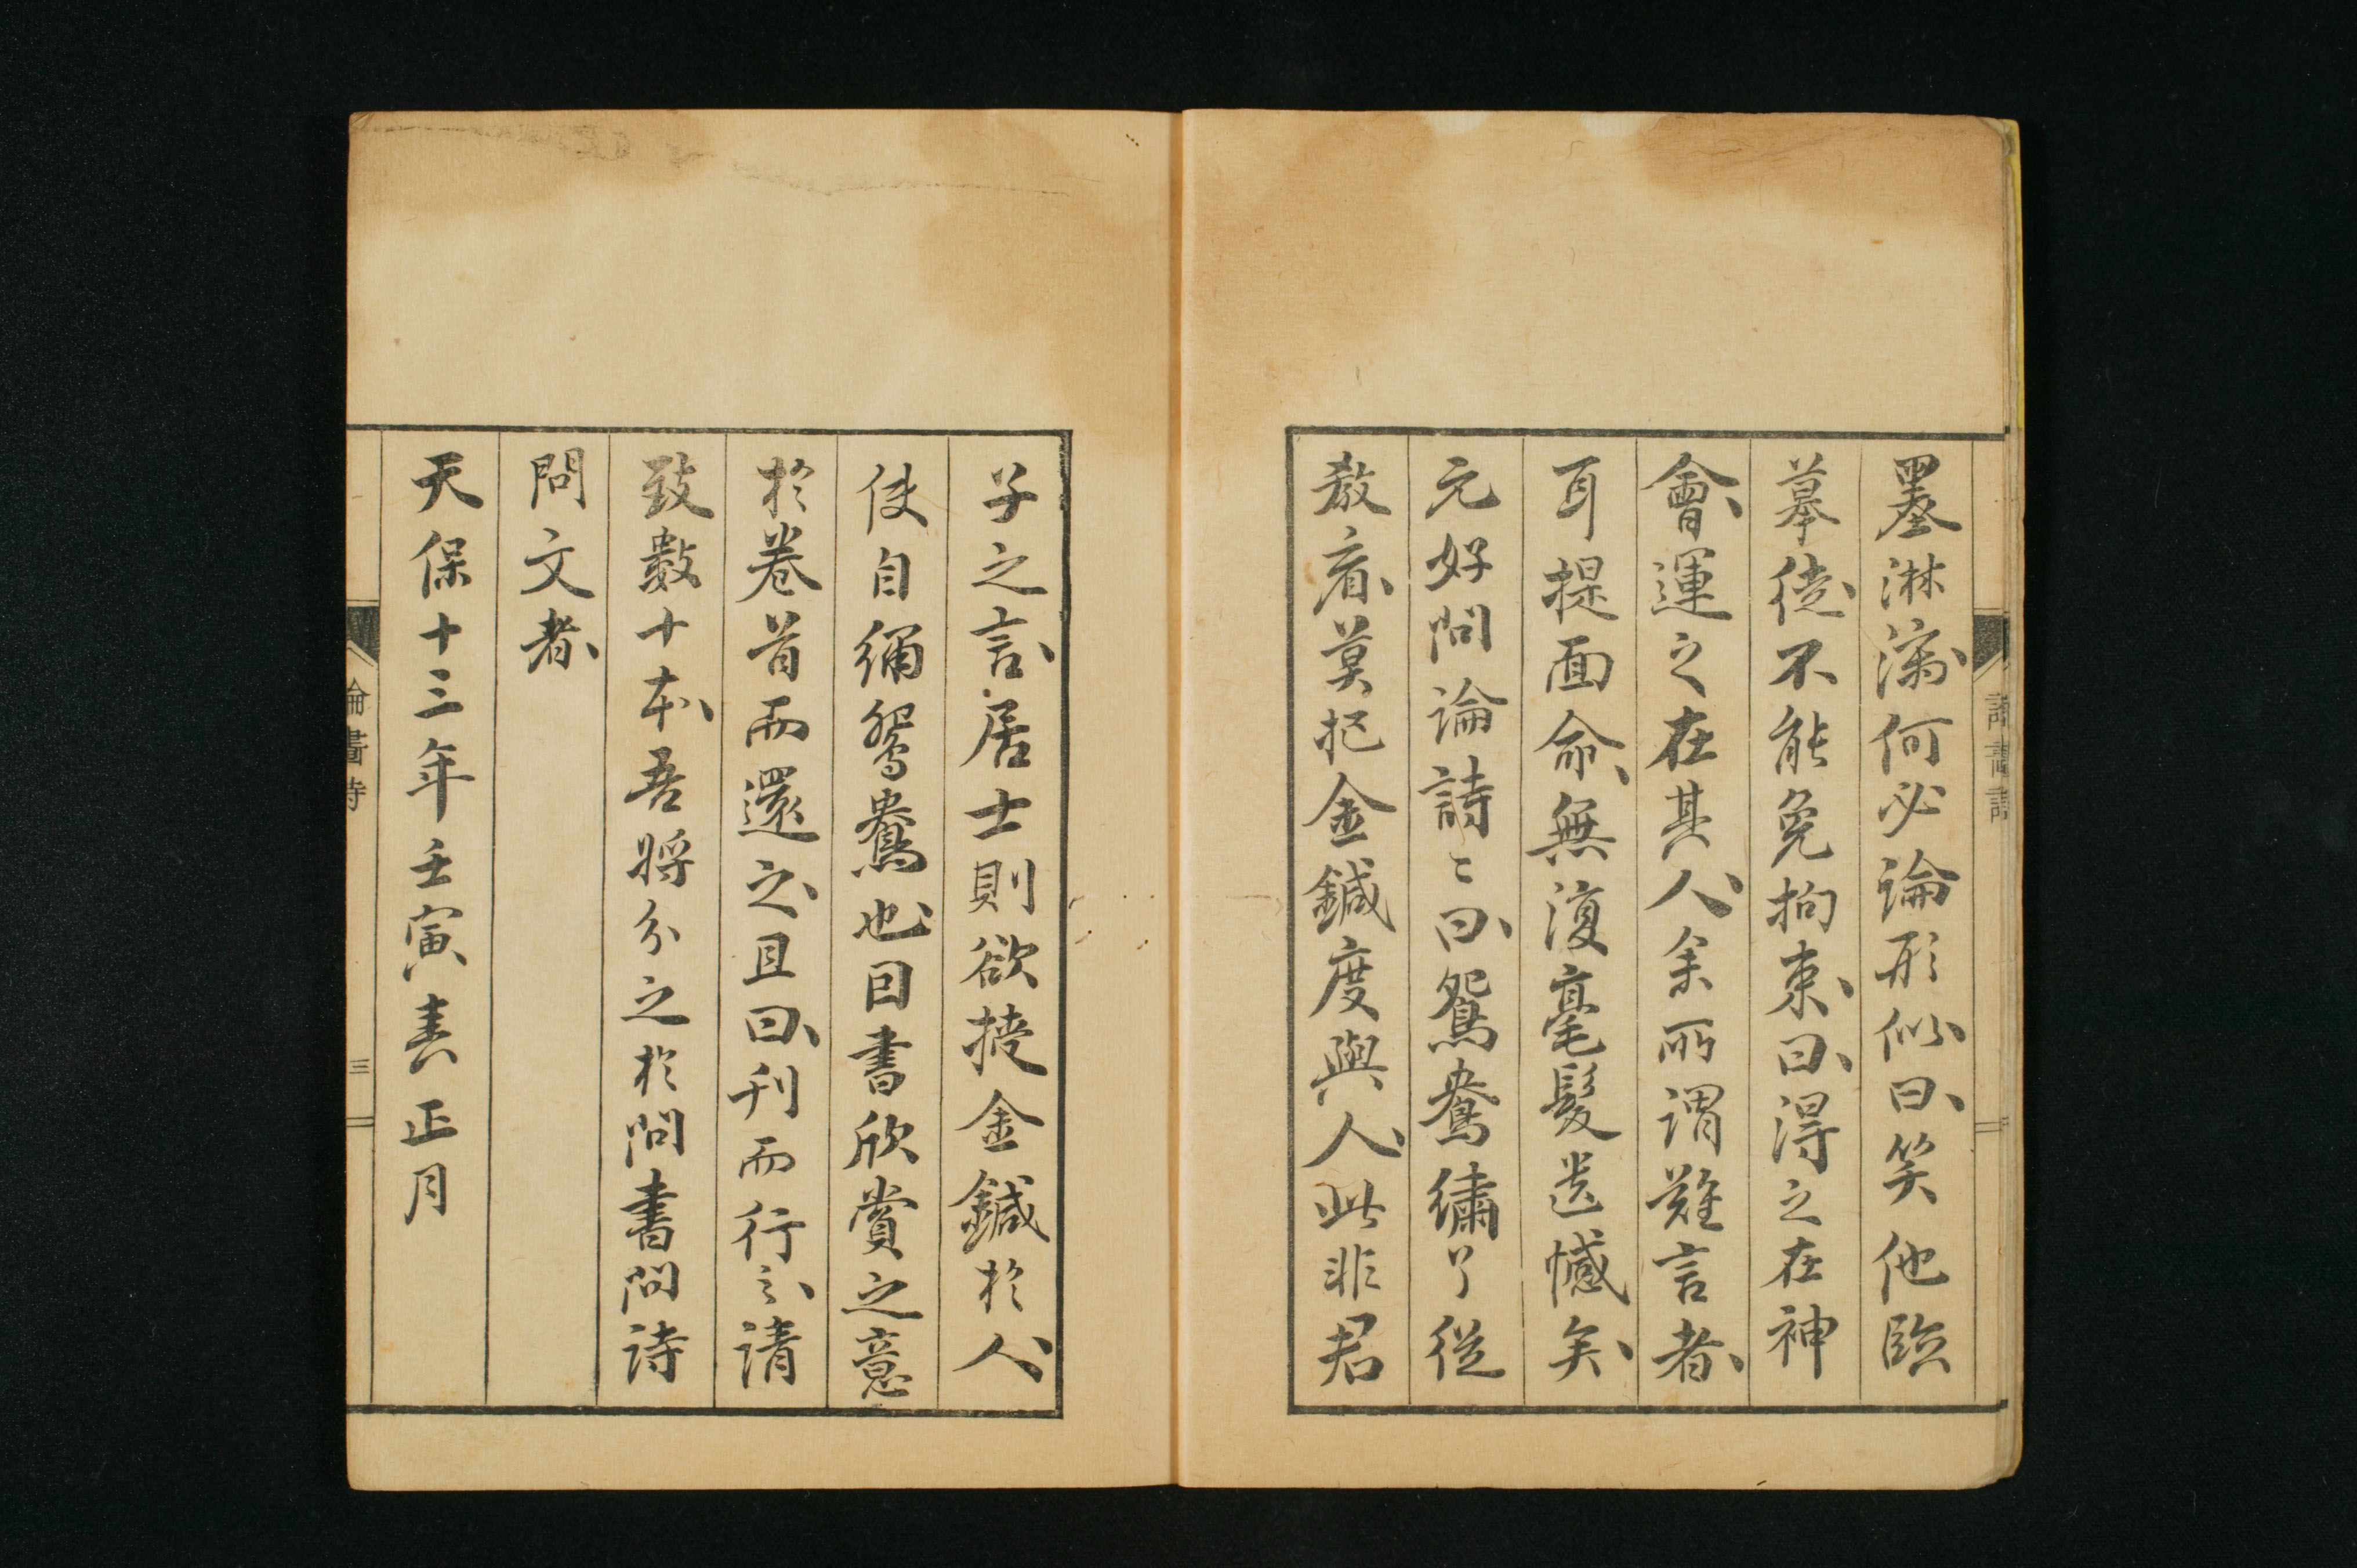 墨淋漓何必論形似曰笑他臨
摹徒不能免拘束曰得之在神
會運之在其人余所謂難言者
耳提面命無復毫髮遺憾矣
元好問論詩〻曰鴛鴦繡了從
教看莫把金鍼度與人此非君
子之言居士則欲援金鍼於人
使自繡鴛鴦也因書欣賞之意
於卷首而還之且曰刊而行之請
致數十本吾將分之於問書問詩
問文者
天保十三年壬寅春正月
論書詩
三